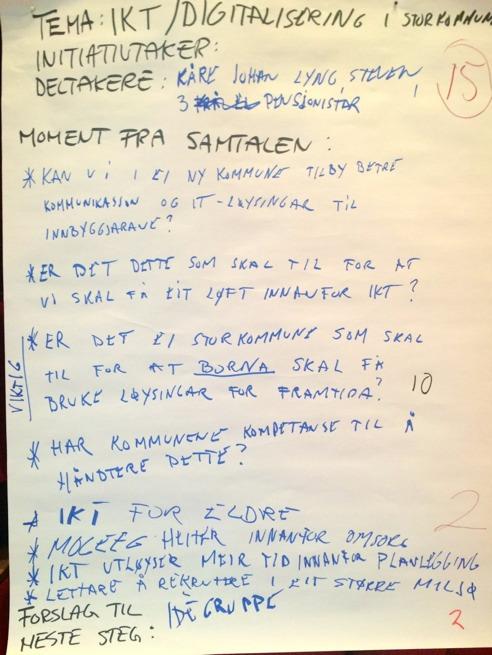 TEMA: IKT/DIGITALISERING I STORKOMMUNE
INITIATIVTAKER:
DELTAKERE: KÅRE JOHAN LYNG, STEVEN,
3 PENSJONISTAR
15
MOMENT FRA SAMTALEN:
* KAN VI I EI NY KOMMUNE TILBY BETRE
KOMMUNIKASJON OG IT-LØYSINGAR TIL
INNBYGGJARANE?
* ER DET DETTE SOM SKAL TIL FOR AT
VI SKAL FÅ EIT LØFT INNANFOR IKT?
* ER DET EI STORKOMMUNE SOM SKAL
TIL FOR AT BORNA SKAL FÅ
BRUKE LØYSINGAR FOR FRAMTIDA?
VIKTIG
10
* HAR KOMMUNENE KOMPETANSE TIL Å
HÅNDTERE DETTE?
* IKT FOR ELDRE
2
* MOGLEG HEITER INNANFOR OMSORG
* IKT UTLØYSER MEIR TID INNANFOR PLANLEGGING
* LETTARE Å REKRUTERE I EIT STØRRE MILJØ
FORSLAG TIL IDÈGRUPPE
NESTE STEG:
2